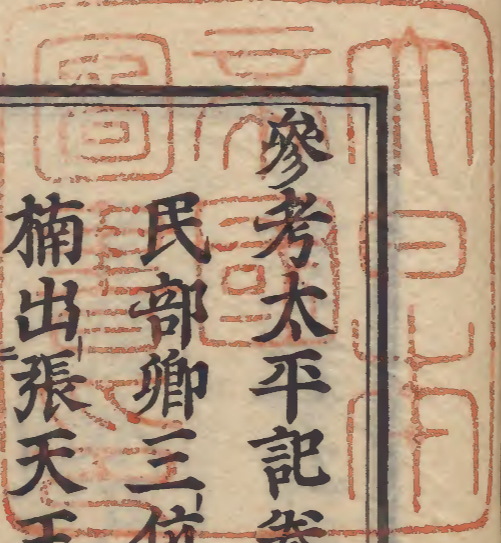 參考太平記
民部卿三位
楠出張天王